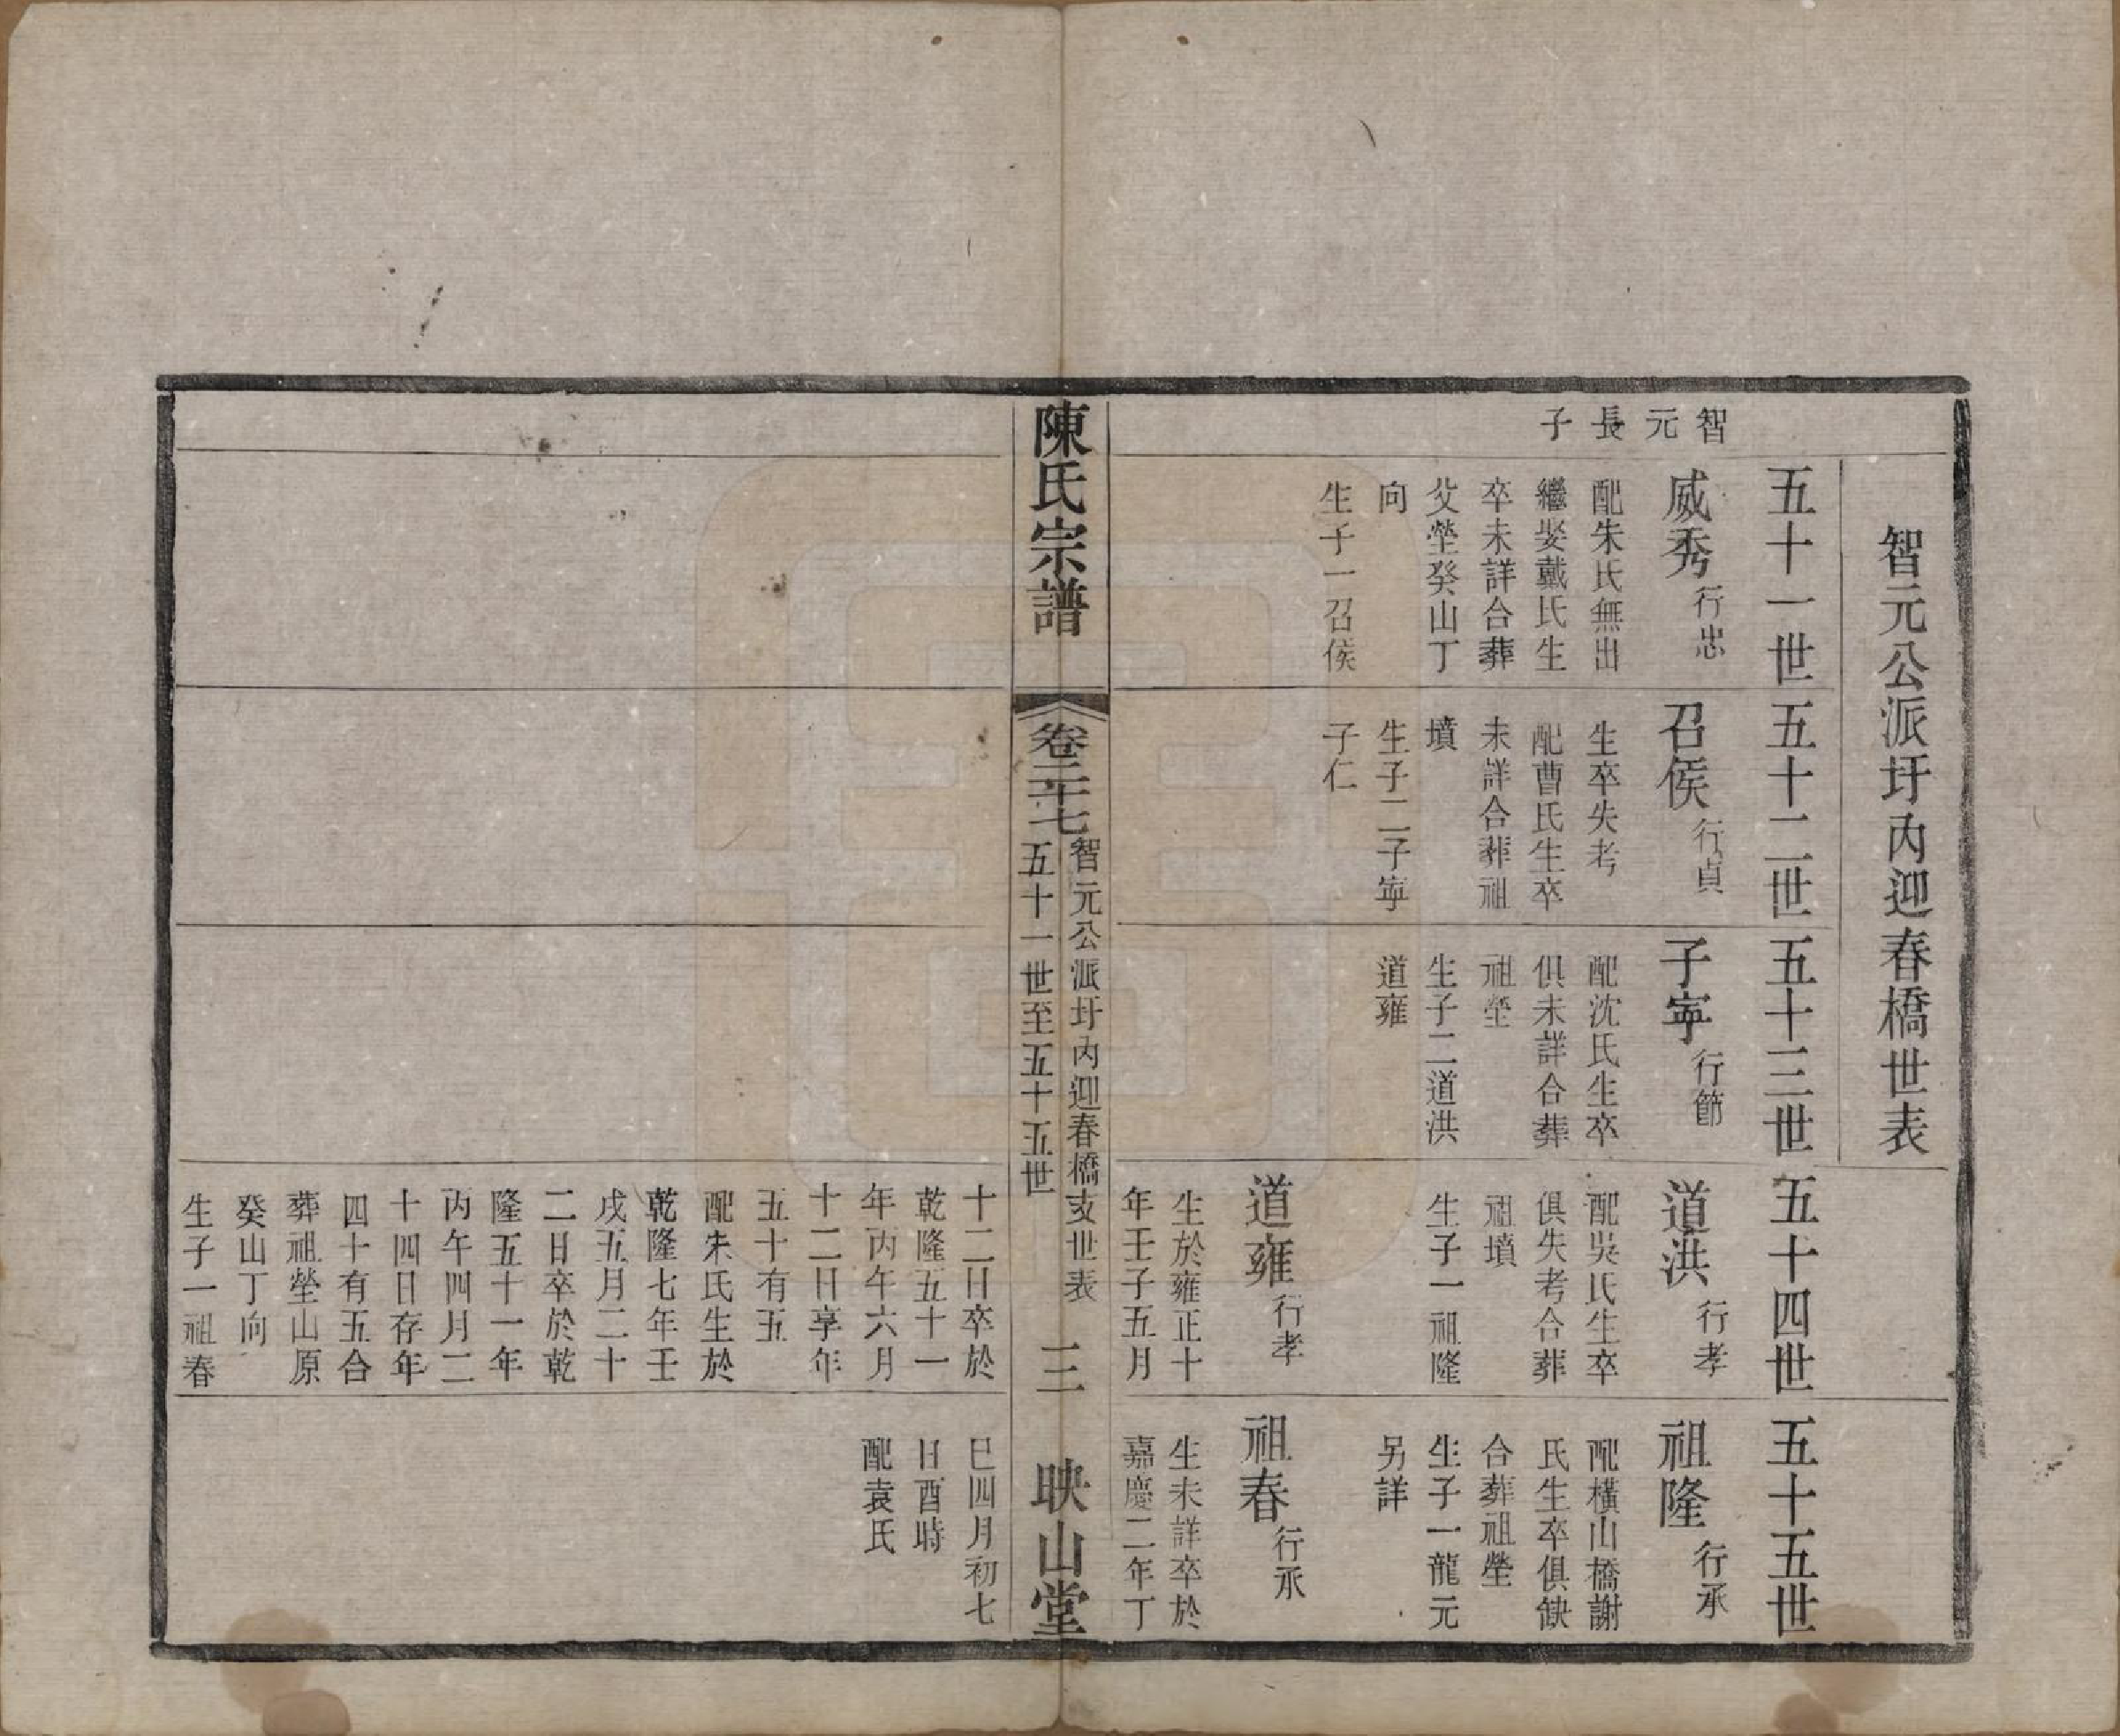 智元公派圩內迎春橋世表
五十一世
智
元
長
子
威秀行忠
配朱氏無出
繼娶戴氏生
卒未詳合葬
父塋癸山丁
向
生子一召侯
五十二世
召侯行貞
生卒失考
配曹氏生卒
未詳合葬祖
墳
生子二子寧
子仁
五十三世
子寧行節
配沈氏生卒
俱未詳合葬
祖塋
生子二道洪
道雍
五十四世
道洪行孝
配吳氏生卒
俱失考合葬
祖墳
生子一祖隆
道雍行孝
生於雍正十
年壬子五月
五十五世
祖隆行承
配橫山橋謝
氏生卒俱缺
合葬祖塋
生子一龍元
另詳
祖春行承
生未詳卒於
嘉慶二年丁
陳氏宗譜
卷二十七
智元公派圩內迎春橋支世表
五十一世至五十五世
三
映山堂
十二日卒於
乾隆五十一
年丙午六月
十二日享年
五十有五
配朱氏生於
乾隆七年壬
戌五月二十
二日卒於乾
隆五十一年
丙午四月二
十四日存年
四十有五合
葬祖塋山原
癸山丁向
生子一祖春
巳四月初七
日酉時
配袁氏